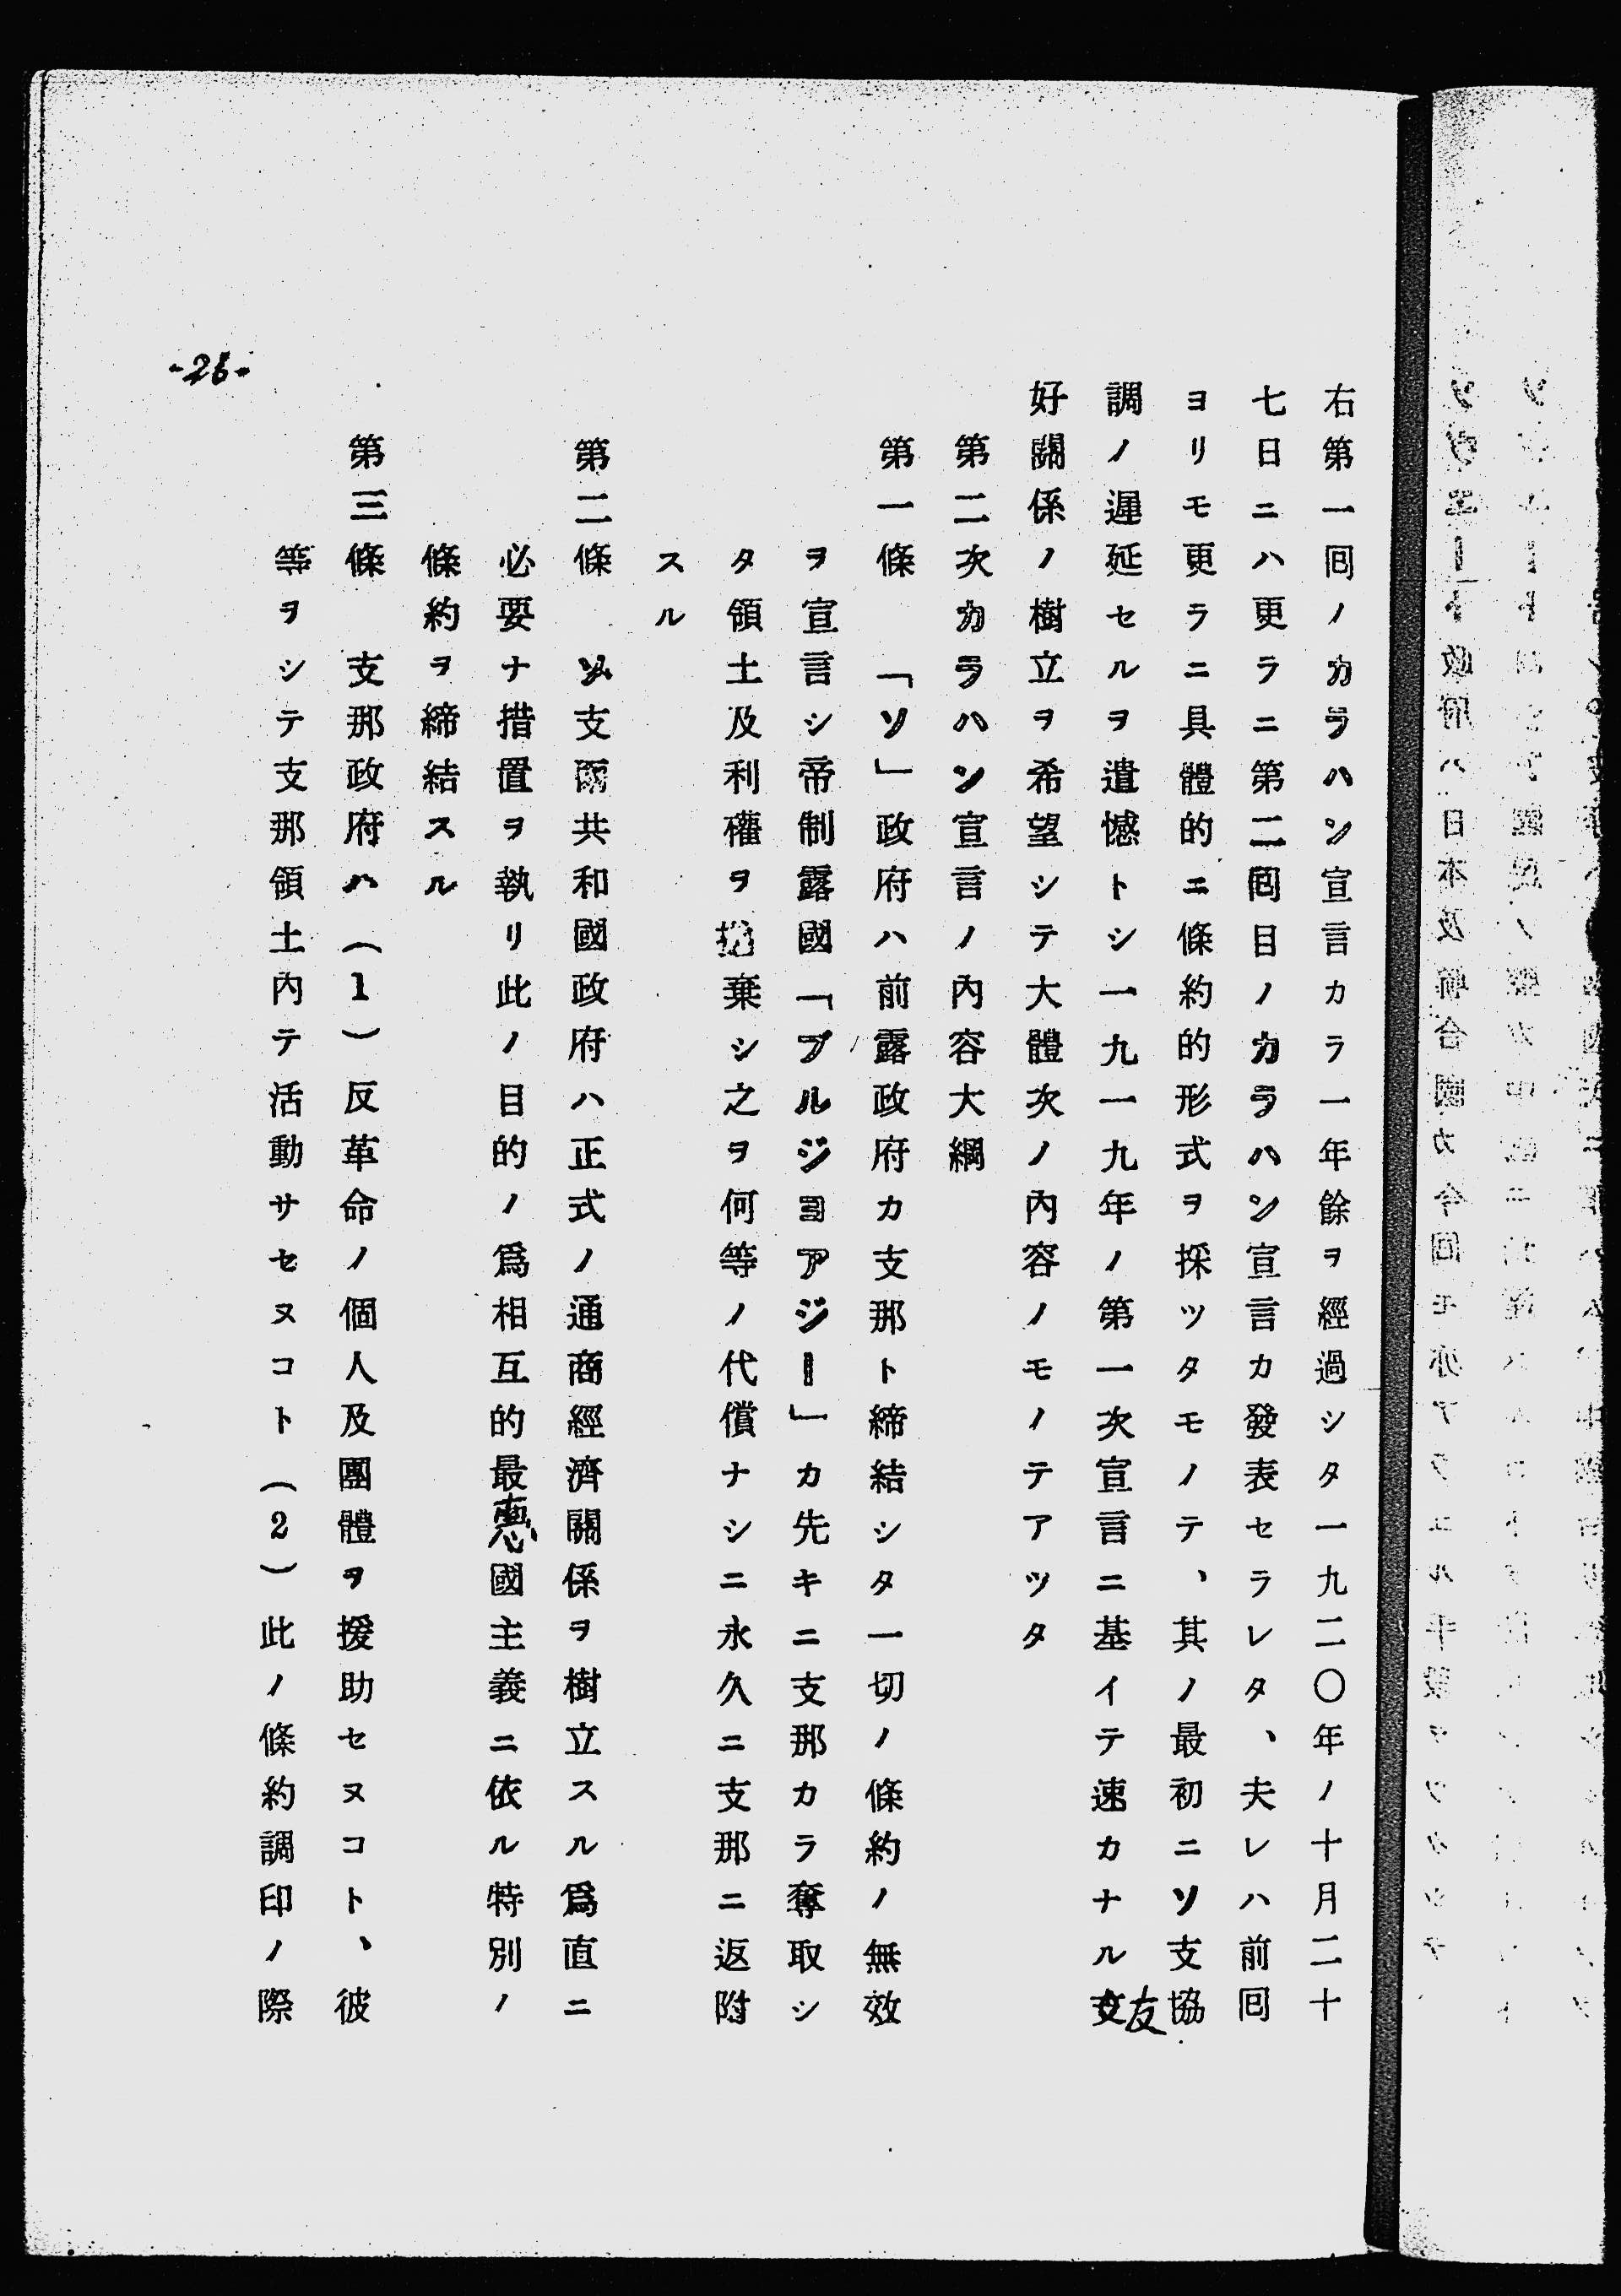 右第一囘ノカラハン宣言カラ一年餘ヲ經過シタ一九二〇年ノ十月二十
七日ニハ更ラニ第二囘目ノカラハン宣言カ發表セラレタ、夫レハ前囘
ヨリモ更ラニ具體的ニ條約的形式ヲ採ツタモノテ、其ノ最初ニソ支協
調ノ遲延セルヲ遺憾トシ一九一九年ノ第一次宣言ニ基イテ速カナル友
好關係ノ樹立ヲ希望シテ大體次ノ內容ノモノテアツタ
第二次カラハン宣言ノ內容大綱
第一條　「ソ」政府ハ前露政府カ支那ト締結シタ一切ノ條約ノ無效
ヲ宣言シ帝制露國「ブルジヨアジー」カ先キニ支那カラ奪取シ
タ領土及利權ヲ抛棄シ之ヲ何等ノ代償ナシニ永久ニ支那ニ返附
スル
第二條　ソ支兩共和國政府ハ正式ノ通商經濟關係ヲ樹立スル爲直ニ
必要ナ措置ヲ執リ此ノ目的ノ爲相互的最惠國主義ニ依ル特別ノ
條約ヲ締結スル
第三條　支那政府ハ（1）反革命ノ個人及團體ヲ援助セヌコト、彼
等ヲシテ支那領土內テ活動サセヌコト（2）此ノ條約調印ノ際
-26-